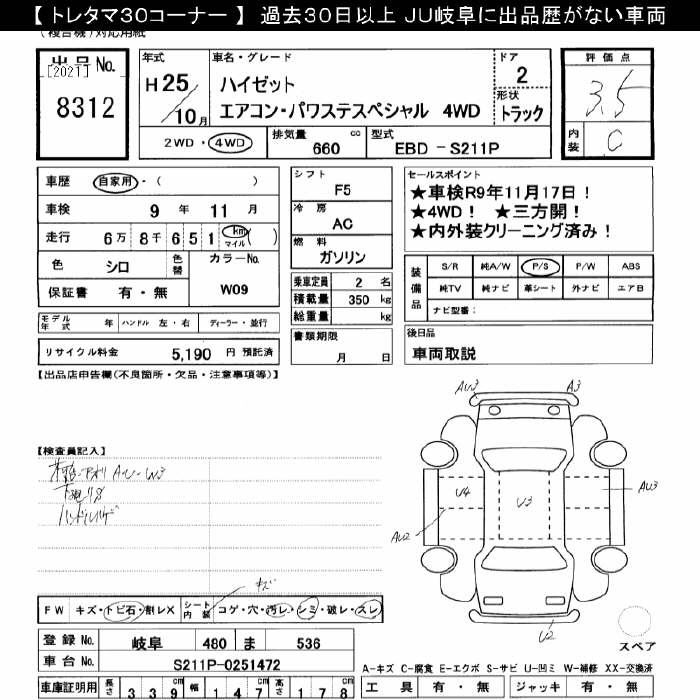 【 トレタマ30コーナー 】 過去30日以上 JU岐阜に出品歴がない車両
(複合機)対応用紙
出品No.
[2021]
8312
年式
H 25
10 月
車名・グレード
ハイゼット
エアコン・パワステスペシャル 4WD
ドア
2
形状
トラック
2WD ・ 4WD
排気量 cc
660
型式
EBD - S211P
評価点
3.5
内装
C
車歴 自家用 ・( )
車検 9 年 11 月
走行 6万 8千 6 5 1 km マイル ( )
色 シロ 色替
カラーNo.
W09
保証書 有・無
シフト
F5
冷房
AC
燃料
ガソリン
乗車定員 2 名
積載量 350 kg
総重量 kg
書類期限
月 日
セールスポイント
★車検R9年11月17日!
★4WD! ★三方開!
★内外装クリーニング済み!
装備品
S/R 純A/W P/S P/W ABS
純TV 純ナビ 革シート 外ナビ エアB
ナビ型番:
モデル年式 年 ハンドル 左・右 ディーラー・並行
リサイクル料金 5,190 円 預託済
後日品
車両取説
【出品店申告欄(不良箇所・欠品・注意事項等)】
【検査員記入】
AU3
A3
U4
U3
AU3
AU2
U2
キズ
FW キズ・トビ石・割レX
シート内装 コゲ・穴・汚レ・シミ・破レ・スレ
登録No. 岐阜 480 ま 536
車台No. S211P-0251472
車庫証明用 長さ 339 cm 幅 147 cm 高さ 178 cm
スペア
A-キズ C-腐食 E-エクボ S-サビ U-凹ミ W-補修 XX-交換済
工具 有・無 ジャッキ 有・無